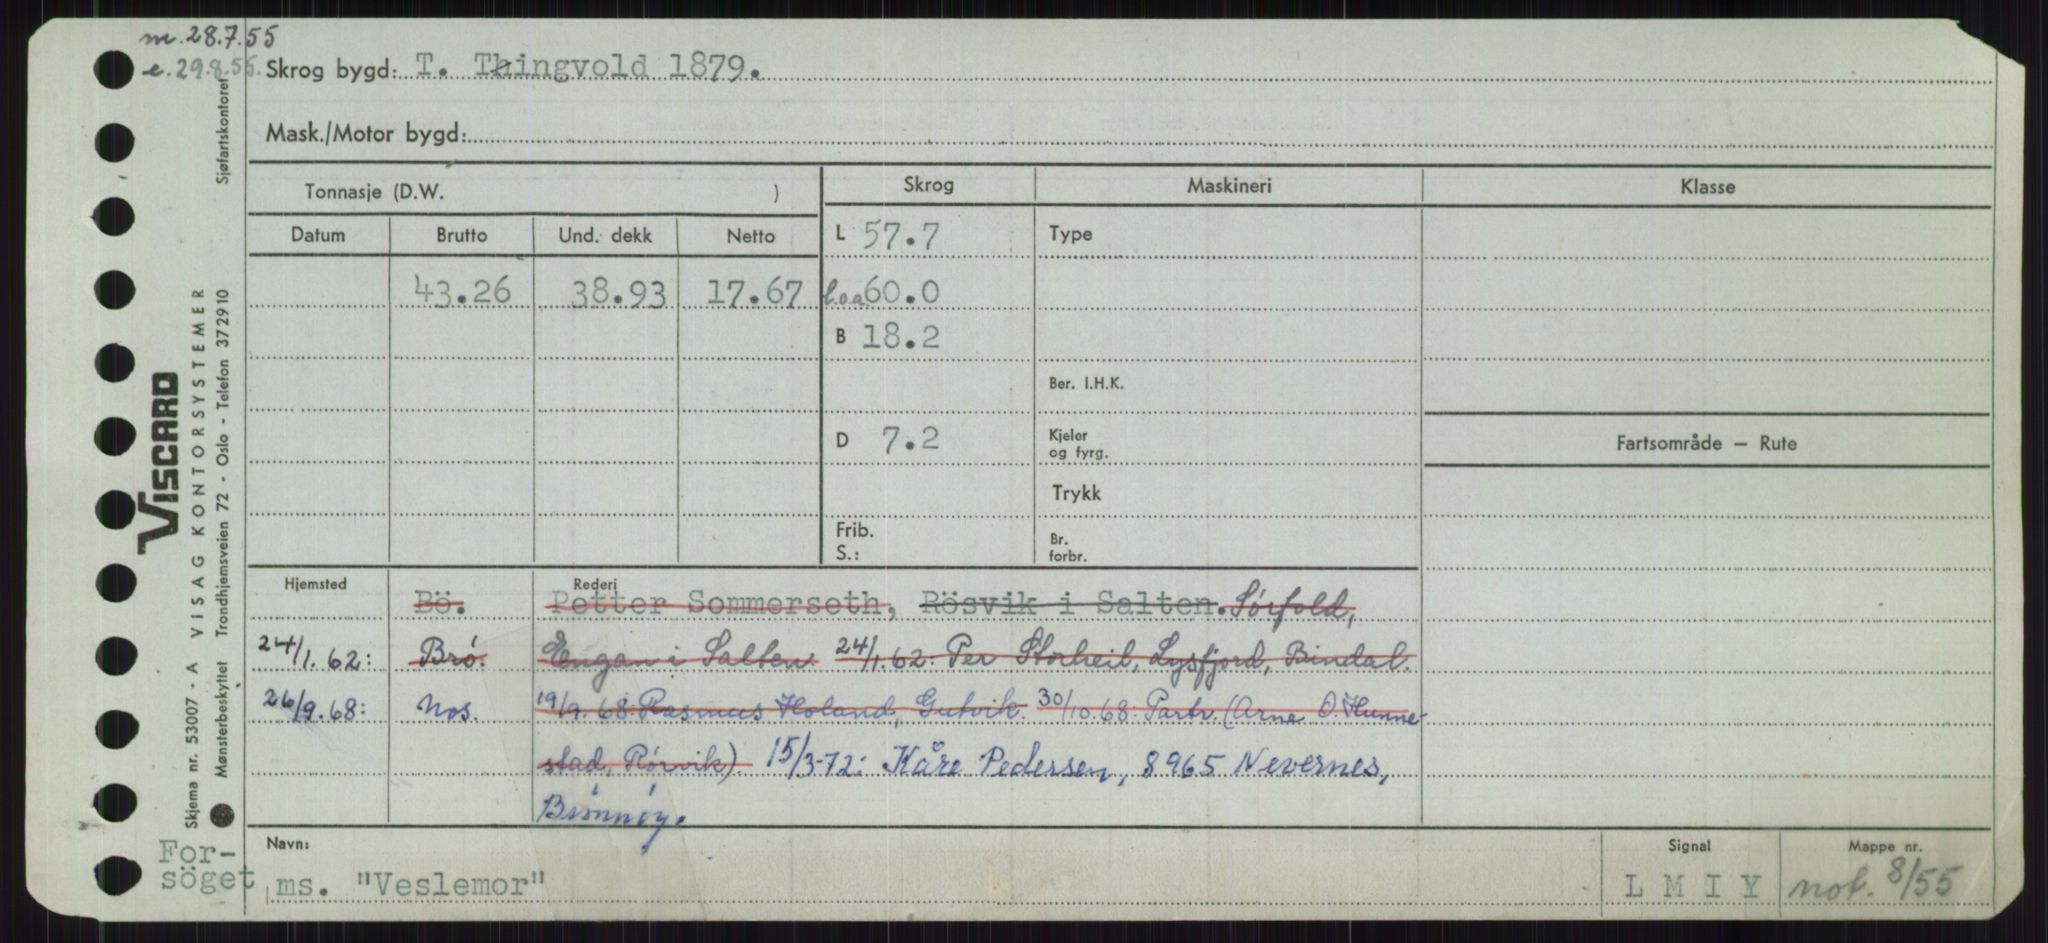 m. 28.7.55
e. 29.8.55.
Skrog bygd: T. Thingvold 1879.
Mask./Motor bygd:
Tonnasje (D.W. )
Skrog
Maskineri
Klasse
Datum Brutto Und. dekk Netto
L 57.7
Type
43.26 38.93 17.67
l.o.a 60.0
B 18.2
Ber. I.H.K.
D 7.2
Kjeler
og fyrg.
Fartsområde — Rute
Trykk
Frib.
S.:
Br.
forbr.
Hjemsted
Rederi
Bö. Petter Sommerseth, Rösvik i Salten. Sørfold,
24/1.62: Brö. Engan i Salten 24/1.62: Per Storheil, Lysfjord, Bindal.
26/9.68: Nos. 19/9.68: Rasmus Holand, Gutvik. 30/10.68: Partr. (Arne O. Hunne-
stad, Rørvik) 15/3-72: Kåre Pedersen, 8965 Nevernes,
Brønnøy.
Navn:
Signal
Mappe nr.
For-
söget
ms. "Veslemor"
L M I Y
not. 8/55
VISCARD
Skjema nr. 53007 - A VISAG KONTORSYSTEMER
Mønsterbeskyttet Trondhjemsveien 72 - Oslo - Telefon 37 29 10
Sjøfartskontoret